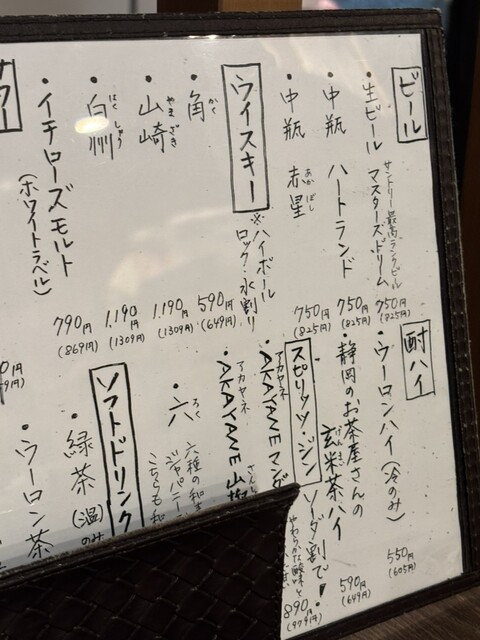 ビール
・生ビール サントリー最高ランクビール マスターズドリーム 750円(825円)
・中瓶 ハートランド 750円(825円)
・中瓶 赤星 あかぼし 750円(825円)
ウイスキー ※ハイボール ロック・水割り
・角 かく 590円(649円)
・山崎 やまざき 1,190円(1309円)
・白州 はくしゅう 1,190円(1309円)
・イチローズモルト(ホワイトラベル) 790円(869円)
サワー
酎ハイ
・ウーロンハイ(冷のみ) 550円(605円)
・静岡のお茶屋さんの玄米茶ハイ げんまい 590円(649円)
スピリッツ・ジン ソーダ割で! 890円(979円)
・AKAYANE アカヤネ やわらかな酸味と
・AKAYANE アカヤネ 山椒 さん
・六 ろく 六種の和 ジャパニー こちらも和
ソフトドリンク
・緑茶(温)のみ
・ウーロン茶